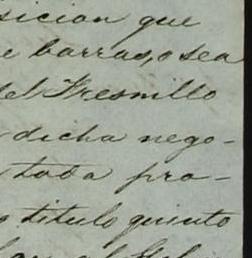 sicion que
e barras, o sea
del Fresnillo
dicha nego-
toda pro-
titulo quinto